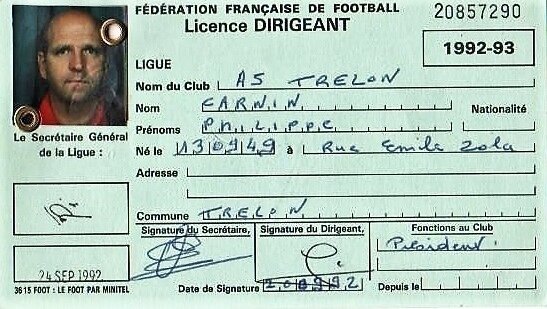 FÉDÉRATION FRANÇAISE DE FOOTBALL
Licence DIRIGEANT
20857290
1992-93
LIGUE
Nom du Club AS TRELON
Nom CARNIN
Nationalité
Prénoms PHILIPPE
Né le 130949 à Rue Emile Zola
Le Secrétaire Général
de la Ligue :
Adresse
Commune TRELON
Signature du Secrétaire,
Signature du Dirigeant,
Fonctions au Club
Président
24 SEP 1992
3615 FOOT : LE FOOT PAR MINITEL
Date de Signature 200992
Depuis le